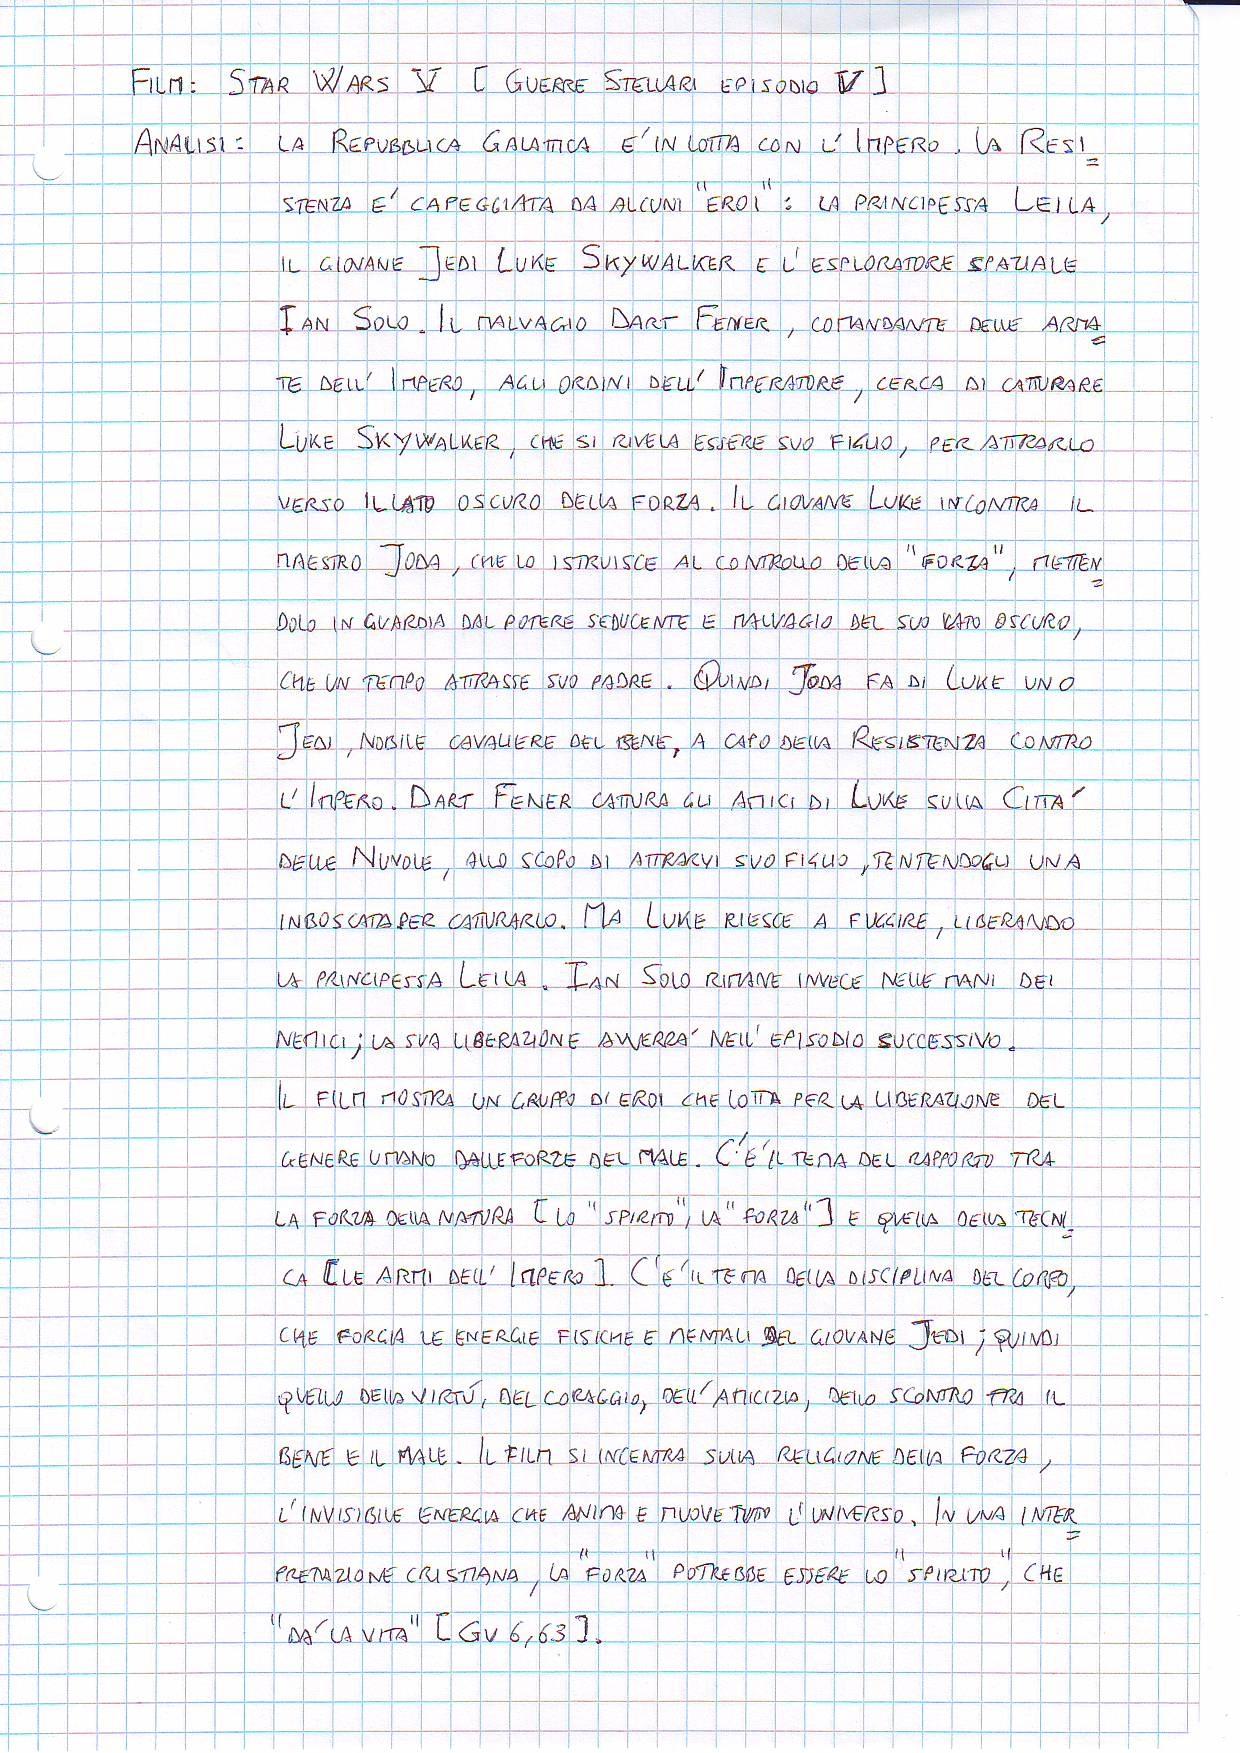 FILM: STAR WARS V [ GUERRE STELLARI EPISODIO V ]
ANALISI: LA REPUBBLICA GALATTICA E' IN LOTTA CON L'IMPERO. LA RESI=
STENZA E' CAPEGGIATA DA ALCUNI "EROI": LA PRINCIPESSA LEILA,
IL GIOVANE JEDI LUKE SKYWALKER E L'ESPLORATORE SPAZIALE
IAN SOLO. IL MALVAGIO DART FENER, COMANDANTE DELLE ARMA=
TE DELL'IMPERO, AGLI ORDINI DELL'IMPERATORE, CERCA DI CATTURARE
LUKE SKYWALKER, CHE SI RIVELA ESSERE SUO FIGLIO, PER ATTRARLO
VERSO IL LATO OSCURO DELLA FORZA. IL GIOVANE LUKE INCONTRA IL
MAESTRO JODA, CHE LO ISTRUISCE AL CONTROLLO DELLA "FORZA", METTEN=
DOLO IN GUARDIA DAL POTERE SEDUCENTE E MALVAGIO DEL SUO LATO OSCURO,
CHE UN TEMPO ATTRASSE SUO PADRE. QUINDI JODA FA DI LUKE UNO
JEDI, NOBILE CAVALIERE DEL BENE, A CAPO DELLA RESISTENZA CONTRO
L'IMPERO. DART FENER CATTURA GLI AMICI DI LUKE SULLA CITTA'
DELLE NUVOLE, ALLO SCOPO DI ATTRARVI SUO FIGLIO, TENTENDOGLI UNA
INBOSCATA PER CATTURARLO. MA LUKE RIESCE A FUGGIRE, LIBERANDO
LA PRINCIPESSA LEILA. IAN SOLO RIMANE INVECE NELLE MANI DEI
NEMICI; LA SUA LIBERAZIONE AVVERRA' NELL'EPISODIO SUCCESSIVO.
IL FILM MOSTRA UN GRUPPO DI EROI CHE LOTTA PER LA LIBERAZIONE DEL
GENERE UMANO DALLE FORZE DEL MALE. C'E' IL TEMA DEL RAPPORTO TRA
LA FORZA DELLA NATURA [ LO "SPIRITO", LA "FORZA" ] E QUELLA DELLA TECNI=
CA [ LE ARMI DELL'IMPERO ]. C'E' IL TEMA DELLA DISCIPLINA DEL CORPO,
CHE FORGIA LE ENERGIE FISICHE E MENTALI DEL GIOVANE JEDI; QUINDI
QUELLO DELLA VIRTÚ, DEL CORAGGIO, DELL'AMICIZIA, DELLO SCONTRO TRA IL
BENE E IL MALE. IL FILM SI INCENTRA SULLA RELIGIONE DELLA FORZA,
L'INVISIBILE ENERGIA CHE ANIMA E MUOVE TUTTO L'UNIVERSO. IN UNA INTER=
PRETAZIONE CRISTIANA, LA "FORZA" POTREBBE ESSERE LO "SPIRITO", CHE
"DA' LA VITA" [ GV 6,63 ].